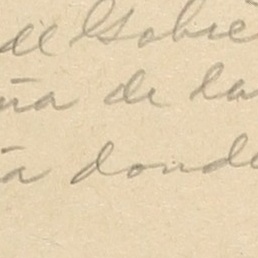 del Gobie
na de la
a donde